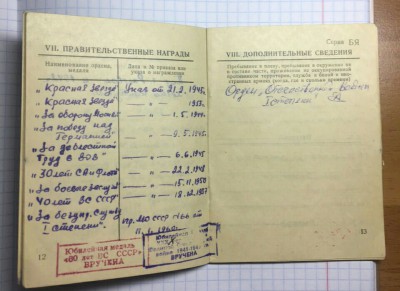 VII. ПРАВИТЕЛЬСТВЕННЫЕ НАГРАДЫ
Наименование ордена, медали
Дата и № приказа или указа о награждении
"Красная звезда" Указ от 21.2.1945г.
"Красная звезда" 1953г.
"За оборону 1.5.1944г.
"За победу над Германией" 9.5.1945г.
"За доблестный
труд в ВОВ" 6.6.1945г.
"30 лет СА и Флота" 22.2.1948
"За боевые заслуги" 15.11.1950
"40 лет ВС СССР" 18.12.1957
"За безупр. службу
I степени" пр. МО СССР от
Юбилейная медаль
«60 лет ВС СССР»
ВРУЧЕНА
Юбилейная
войне 1941-1945
ВРУЧЕНА
12
Серия БЯ
VIII. ДОПОЛНИТЕЛЬНЫЕ СВЕДЕНИЯ
Пребывание в плену, пребывание в окружении не
в составе части, проживание на оккупированной
противником территории, служба в белой и ино-
странных армиях (когда, где и сколько времени)
Орден "Отечественной войны
13